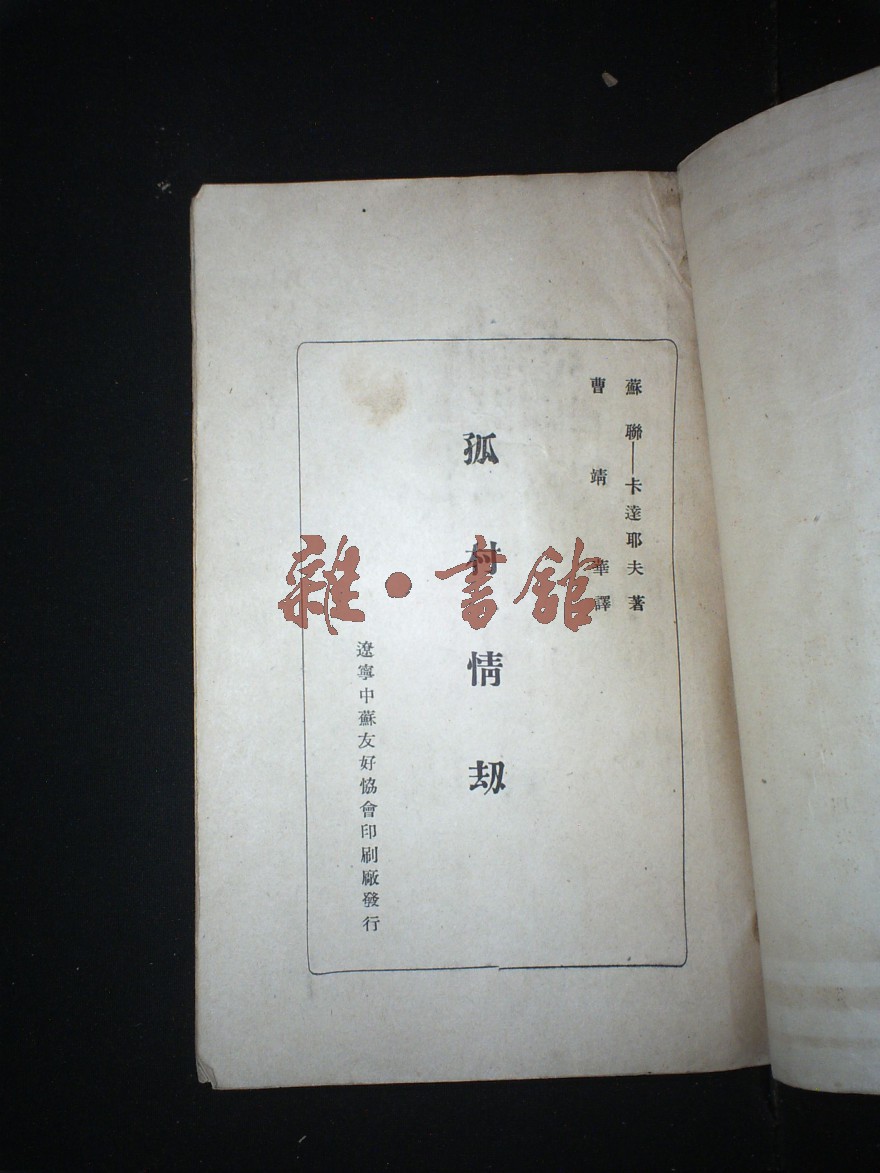 蘇聯—卡達耶夫著
曹靖華譯
孤村情刼
遼寧中蘇友好協會印刷廠發行
雜·書館